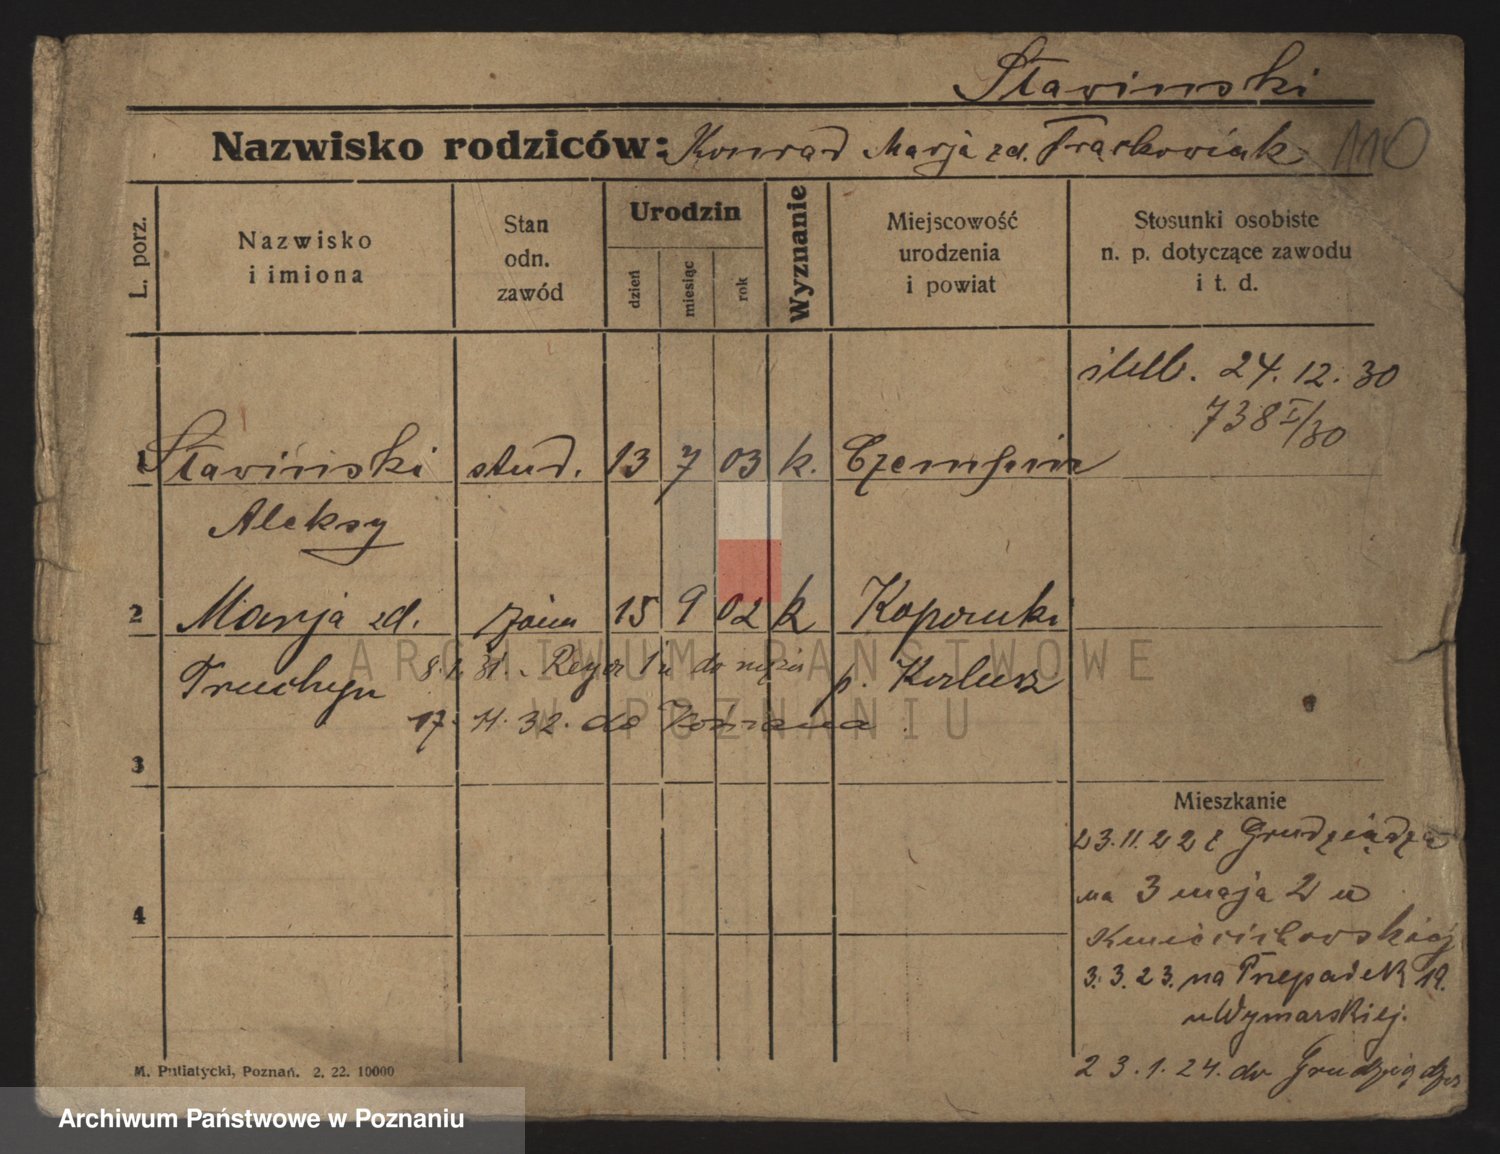 Stawinski
Nazwisko rodziców: Konrad Marja zd. Frąckowiak 110
L. porz.
Nazwisko
i imiona
Stan
odn.
zawód
Urodzin
dzień
miesiąc
rok
Wyznanie
Miejscowość
urodzenia
i powiat
Stosunki osobiste
n. p. dotyczące zawodu
i t. d.
24. 12. 30
738 I/30
1 Stawiński stud. 13 7 03 k. Czempiń
Aleksy
2 Marja zd. żona 15 9 02 k
p.
17. 11. 32. do
3
Mieszkanie
23. 11. 22 z Grudziądza
na 3 maja 2 u
4
3. 3. 23. na Przepadek 19.
u Wymarskiej.
23. 1. 24. do Grudziądza
M. Putiatycki, Poznań. 2. 22. 10000
ARCHIWUM PAŃSTWOWE
W POZNANIU
Archiwum Państwowe w Poznaniu